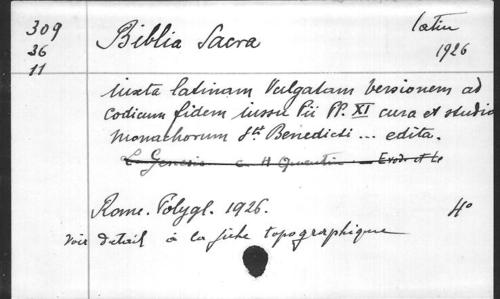 309
36
11
Biblia Sacra
latin
1926
iuxta latinam Vulgatam versionem ad
codicum fidem iussu Pii PP. XI cura et studio
monachorum Sti Benedicti ... edita.
Genesis H Quentin
Rome. Polygl. 1926. 4°
Voir détail à la fiche topographique